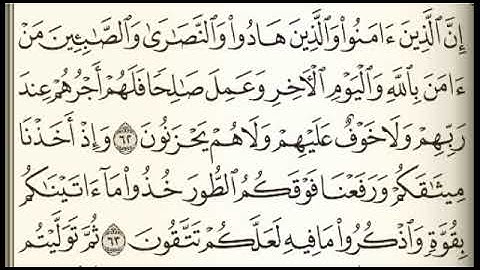 إِنَّ الَّذِينَ ءَامَنُوا۟ وَالَّذِينَ هَادُوا۟ وَالنَّصَٰرَىٰ وَالصَّٰبِـِٔينَ مَنْ
ءَامَنَ بِاللَّهِ وَالْيَوْمِ الْءَاخِرِ وَعَمِلَ صَٰلِحًا فَلَهُمْ أَجْرُهُمْ عِندَ
رَبِّهِمْ وَلَا خَوْفٌ عَلَيْهِمْ وَلَا هُمْ يَحْزَنُونَ ٦٢ وَإِذْ أَخَذْنَا
مِيثَٰقَكُمْ وَرَفَعْنَا فَوْقَكُمُ الطُّورَ خُذُوا۟ مَآ ءَاتَيْنَٰكُم
بِقُوَّةٍ وَاذْكُرُوا۟ مَا فِيهِ لَعَلَّكُمْ تَتَّقُونَ ٦٣ ثُمَّ تَوَلَّيْتُم